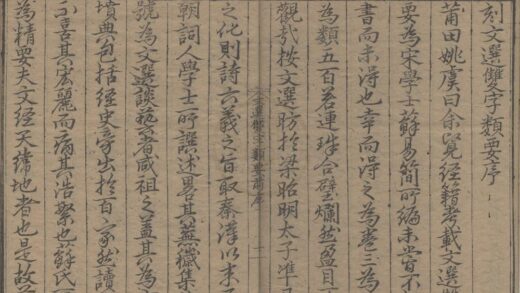 刻文選雙字類要序
莆田姚虞曰余覽經籍考載文選雙
要為宋學士蘇易簡所編未嘗不
書而未得也幸而得之為卷三為
為類五百若連珠合璧爛然盈目
觀哉按文選昉於梁昭明太子準
文選雙字類要前序 一
之化則詩六義之旨取秦漢以來
朝詞人學士所譔述畧其蕪穢集
號為文選談藝者咸祖之蓋其為
墳典包括經史出於百家然讀
不喜其宏麗而病其浩繁也蘇氏
為精要夫文經天緯地者也是故